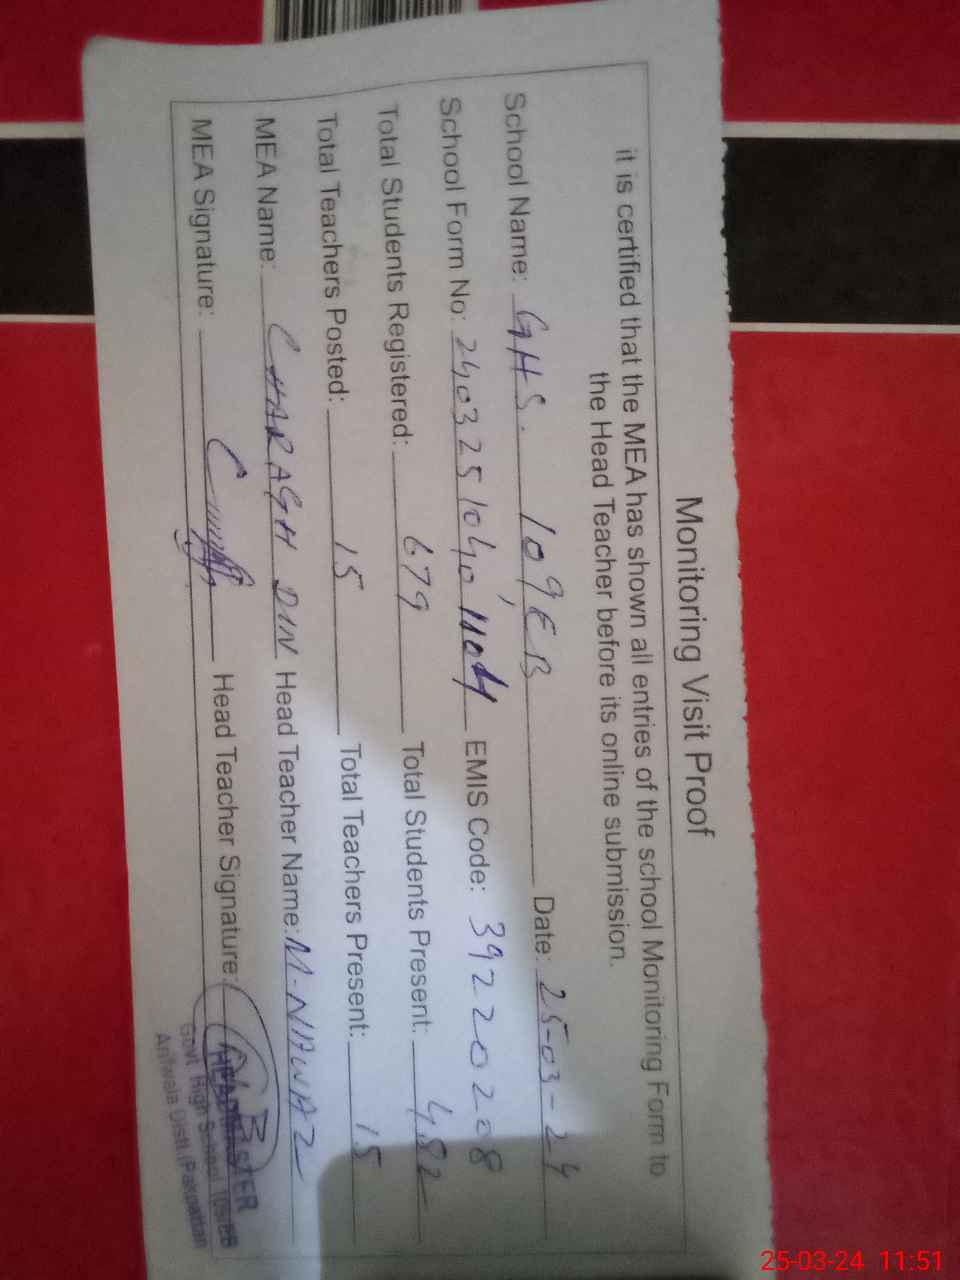 Monitoring Visit Proof
it is certified that the MEA has shown all entries of the school Monitoring Form to
the Head Teacher before its online submission.
School Name: GHS. 109, EB Date: 25-03-24
School Form No: 24032510401104 EMIS Code: 39220208
Total Students Registered: 679 Total Students Present: 482
Total Teachers Posted: 15 Total Teachers Present: 15
MEA Name: CHARAGH DIN Head Teacher Name: M-NAWAZ
MEA Signature: Head Teacher Signature:
HEADMASTER
Govt High School 109/EB
Arifwala Distt. (Pakpattan
25-03-24 11:51